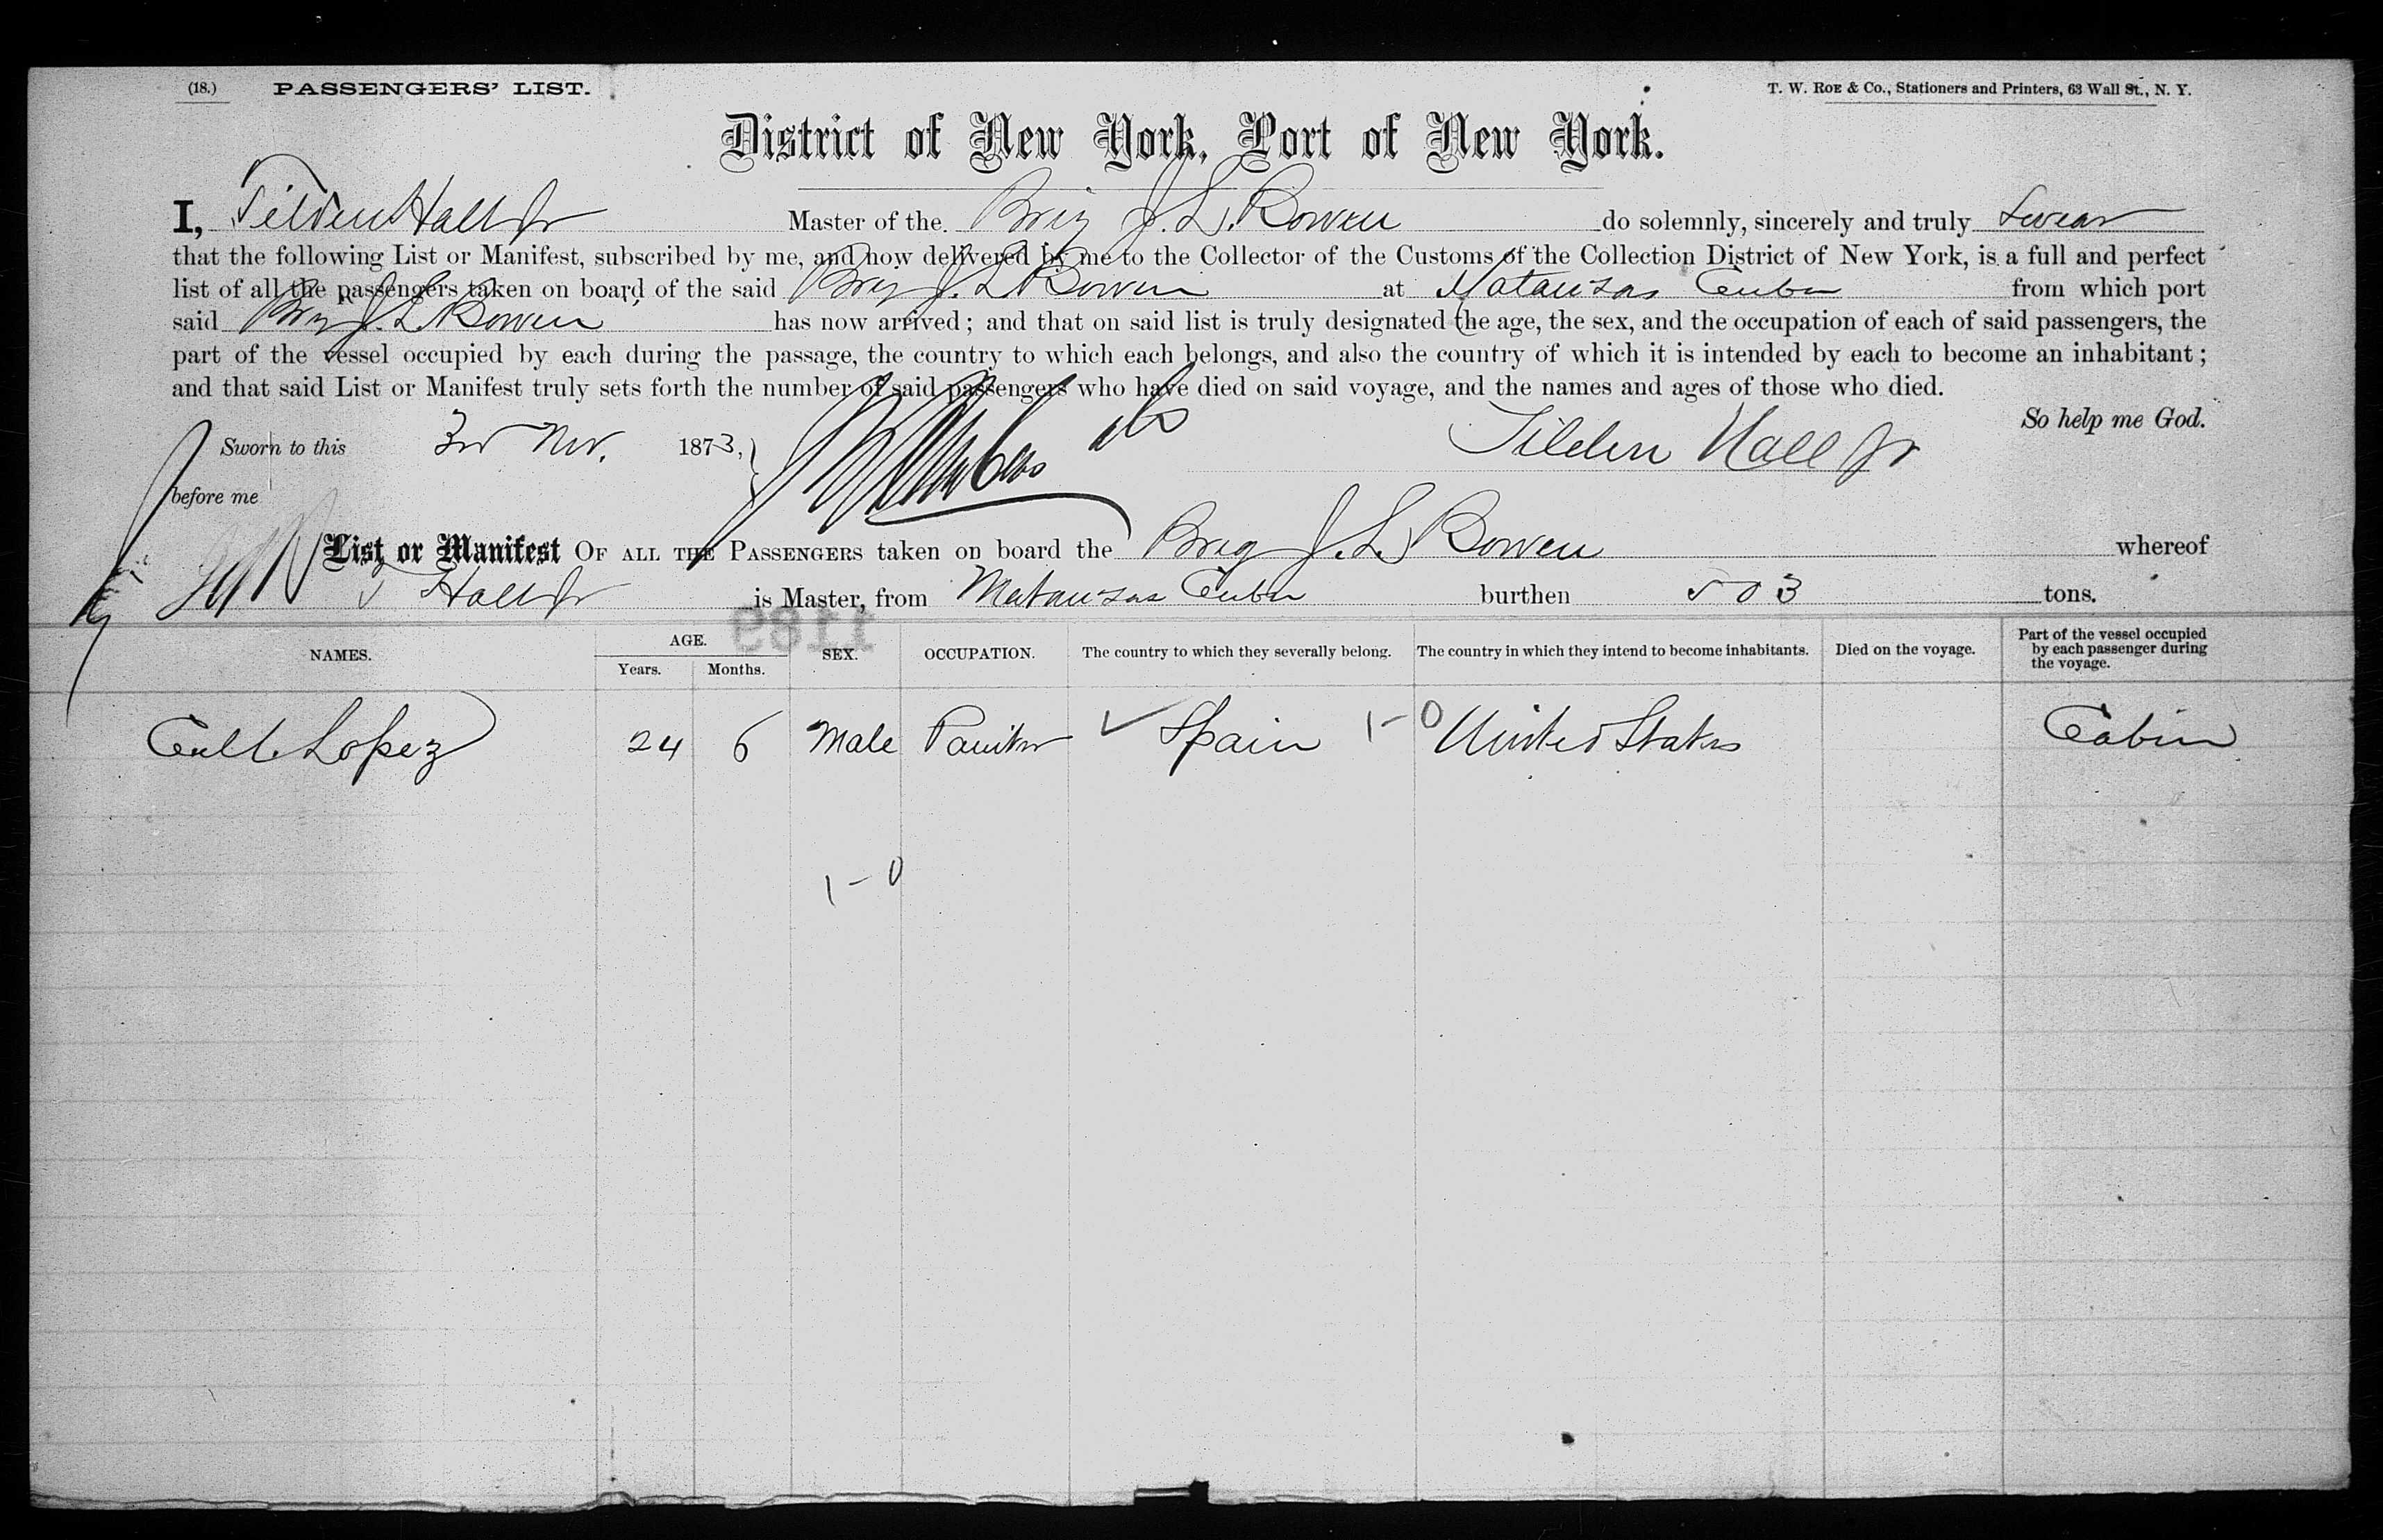 (18.) PASSENGERS' LIST. T. W. ROE & Co., Stationers and Printers, 63 Wall St., N. Y.
District of New York, Port of New York.
I, Tilden Hall Jr Master of the Brig J. L. Bowen do solemnly, sincerely and truly Swear
that the following List or Manifest, subscribed by me, and now delivered by me to the Collector of the Customs of the Collection District of New York, is a full and perfect
list of all the passengers taken on board of the said Brig J. L. Bowen at Matansas Cuba from which port
said Brig J. L. Bowen has now arrived; and that on said list is truly designated the age, the sex, and the occupation of each of said passengers, the
part of the vessel occupied by each during the passage, the country to which each belongs, and also the country of which it is intended by each to become an inhabitant;
and that said List or Manifest truly sets forth the number of said passengers who have died on said voyage, and the names and ages of those who died.
So help me God.
Sworn to this 3rd Nov. 1873, Tilden Hall Jr
before me
List or Manifest OF ALL THE PASSENGERS taken on board the Brig J. L. Bowen whereof
T Hall Jr is Master, from Matansas Cuba burthen 503 tons.
1189
NAMES. AGE. Years. Months. SEX. OCCUPATION. The country to which they severally belong. The country in which they intend to become inhabitants. Died on the voyage. Part of the vessel occupied by each passenger during the voyage.
Lopez 24 6 Male ✓ Spain 1-0 United States Cabin
1-0